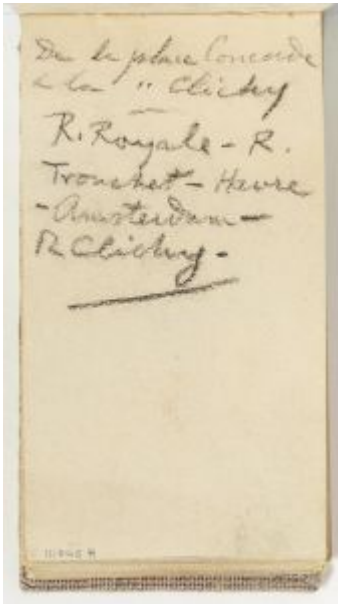 De la place Concorde
a la " Clichy
R. Royale - R.
Tronchet - Havre
- Amsterdam -
R Clichy -